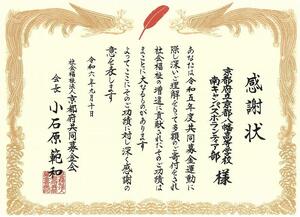 感謝状
京都府立京都八幡高等学校
南キャンパスボランティア部 様
あなたは令和五年度共同募金運動に
際し深いご理解をもって多額のご寄付をされ
社会福祉の増進に貢献されたそのご功績は
まことに大なるものがあります
よってここにそのご功績に対し深く感謝の
意を表します
令和六年九月十日
社会福祉法人京都府共同募金会
会長 小石原範和